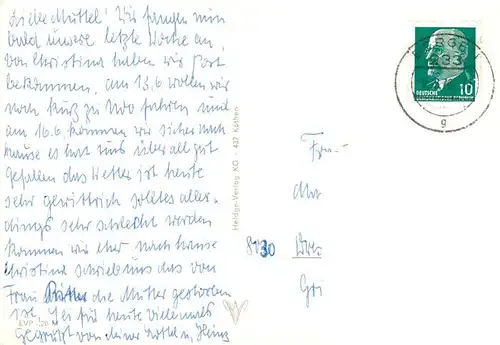 Liebe Mutter! Wir fangen nun
bald unsere letzte Woche an,
von Christina haben wir Post
bekommen. am 13.6 wollen wir
noch kurz zu Udo fahren und
am 16.6. kommen wir sicher nach
hause es hat uns überall gut
gefallen das Wetter ist heute
sehr gewittrich solltes aller-
dings sehr schlecht werden
kommen wir eher nach hause
Christina schrieb uns das von
Frau die Mutter gestorben
ist. Sei für heute vielemals
Gegrüßt von deiner u. Heinz
Heldge-Verlag KG - 437 Köthen
EVP -,20 M
DEUTSCHE
10
g
Frau
8130